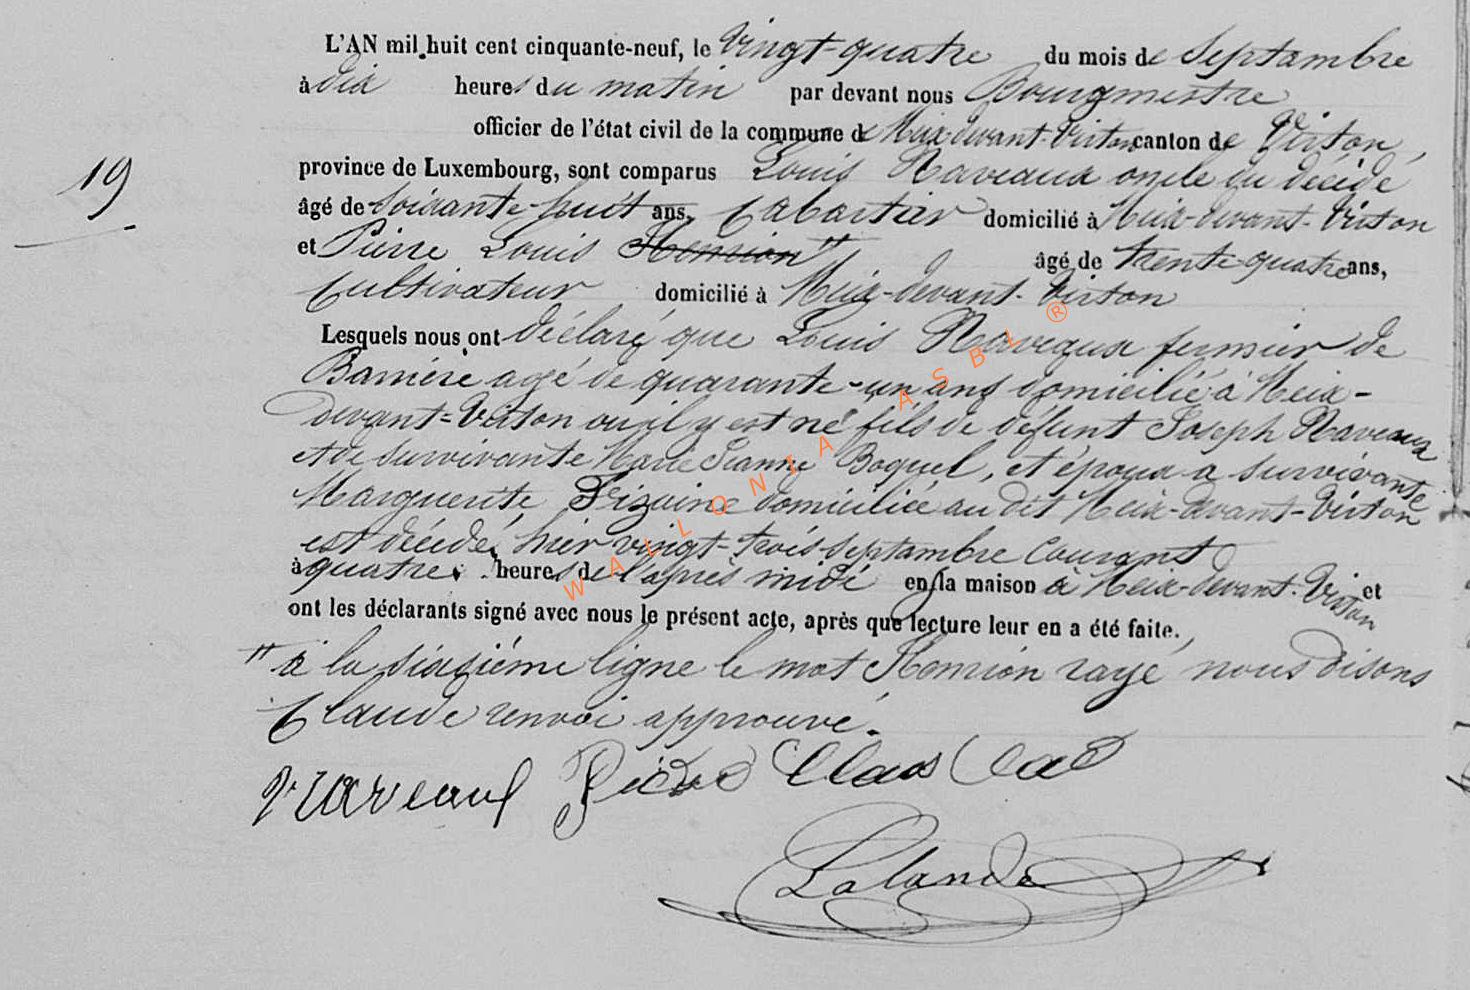 L'AN mil huit cent cinquante-neuf, le Vingt-quatre du mois de Septembre
à dix heures du matin par devant nous Bourgmestre
officier de l'état civil de la commune de Meix-devant-Virton canton de Virton,
19
province de Luxembourg, sont comparus Louis Raveaux oncle du décédé
âgé de soixante-huit ans, Cabartier domicilié à Meix-devant-Virton
et Pierre Louis Henrion " âgé de trente-quatre ans,
Cultivateur domicilié à Meix-devant-Virton
Lesquels nous ont déclaré que Louis Raveaux fermier de
Barrière agé de quarante-un ans domicilié à Meix-
devant-Virton ou il y est né fils de défunt Joseph Raveaux
et de survivante Marie Jeanne Boquel, et époux a survivante
Marguerite Frizaine domiciliée au dit Meix-devant-Virton
est décédé, hier vingt-trois septembre Courant
à quatre heures de l'après midi en sa maison à Meix-devant-Virton et
ont les déclarants signé avec nous le présent acte, après que lecture leur en a été faite.
" à la sixiéme ligne le mot Henrion rayé, nous disons
Claude renvoi approuvé.
raveaux Piere
Lalande
WALLONIA ASBL ®